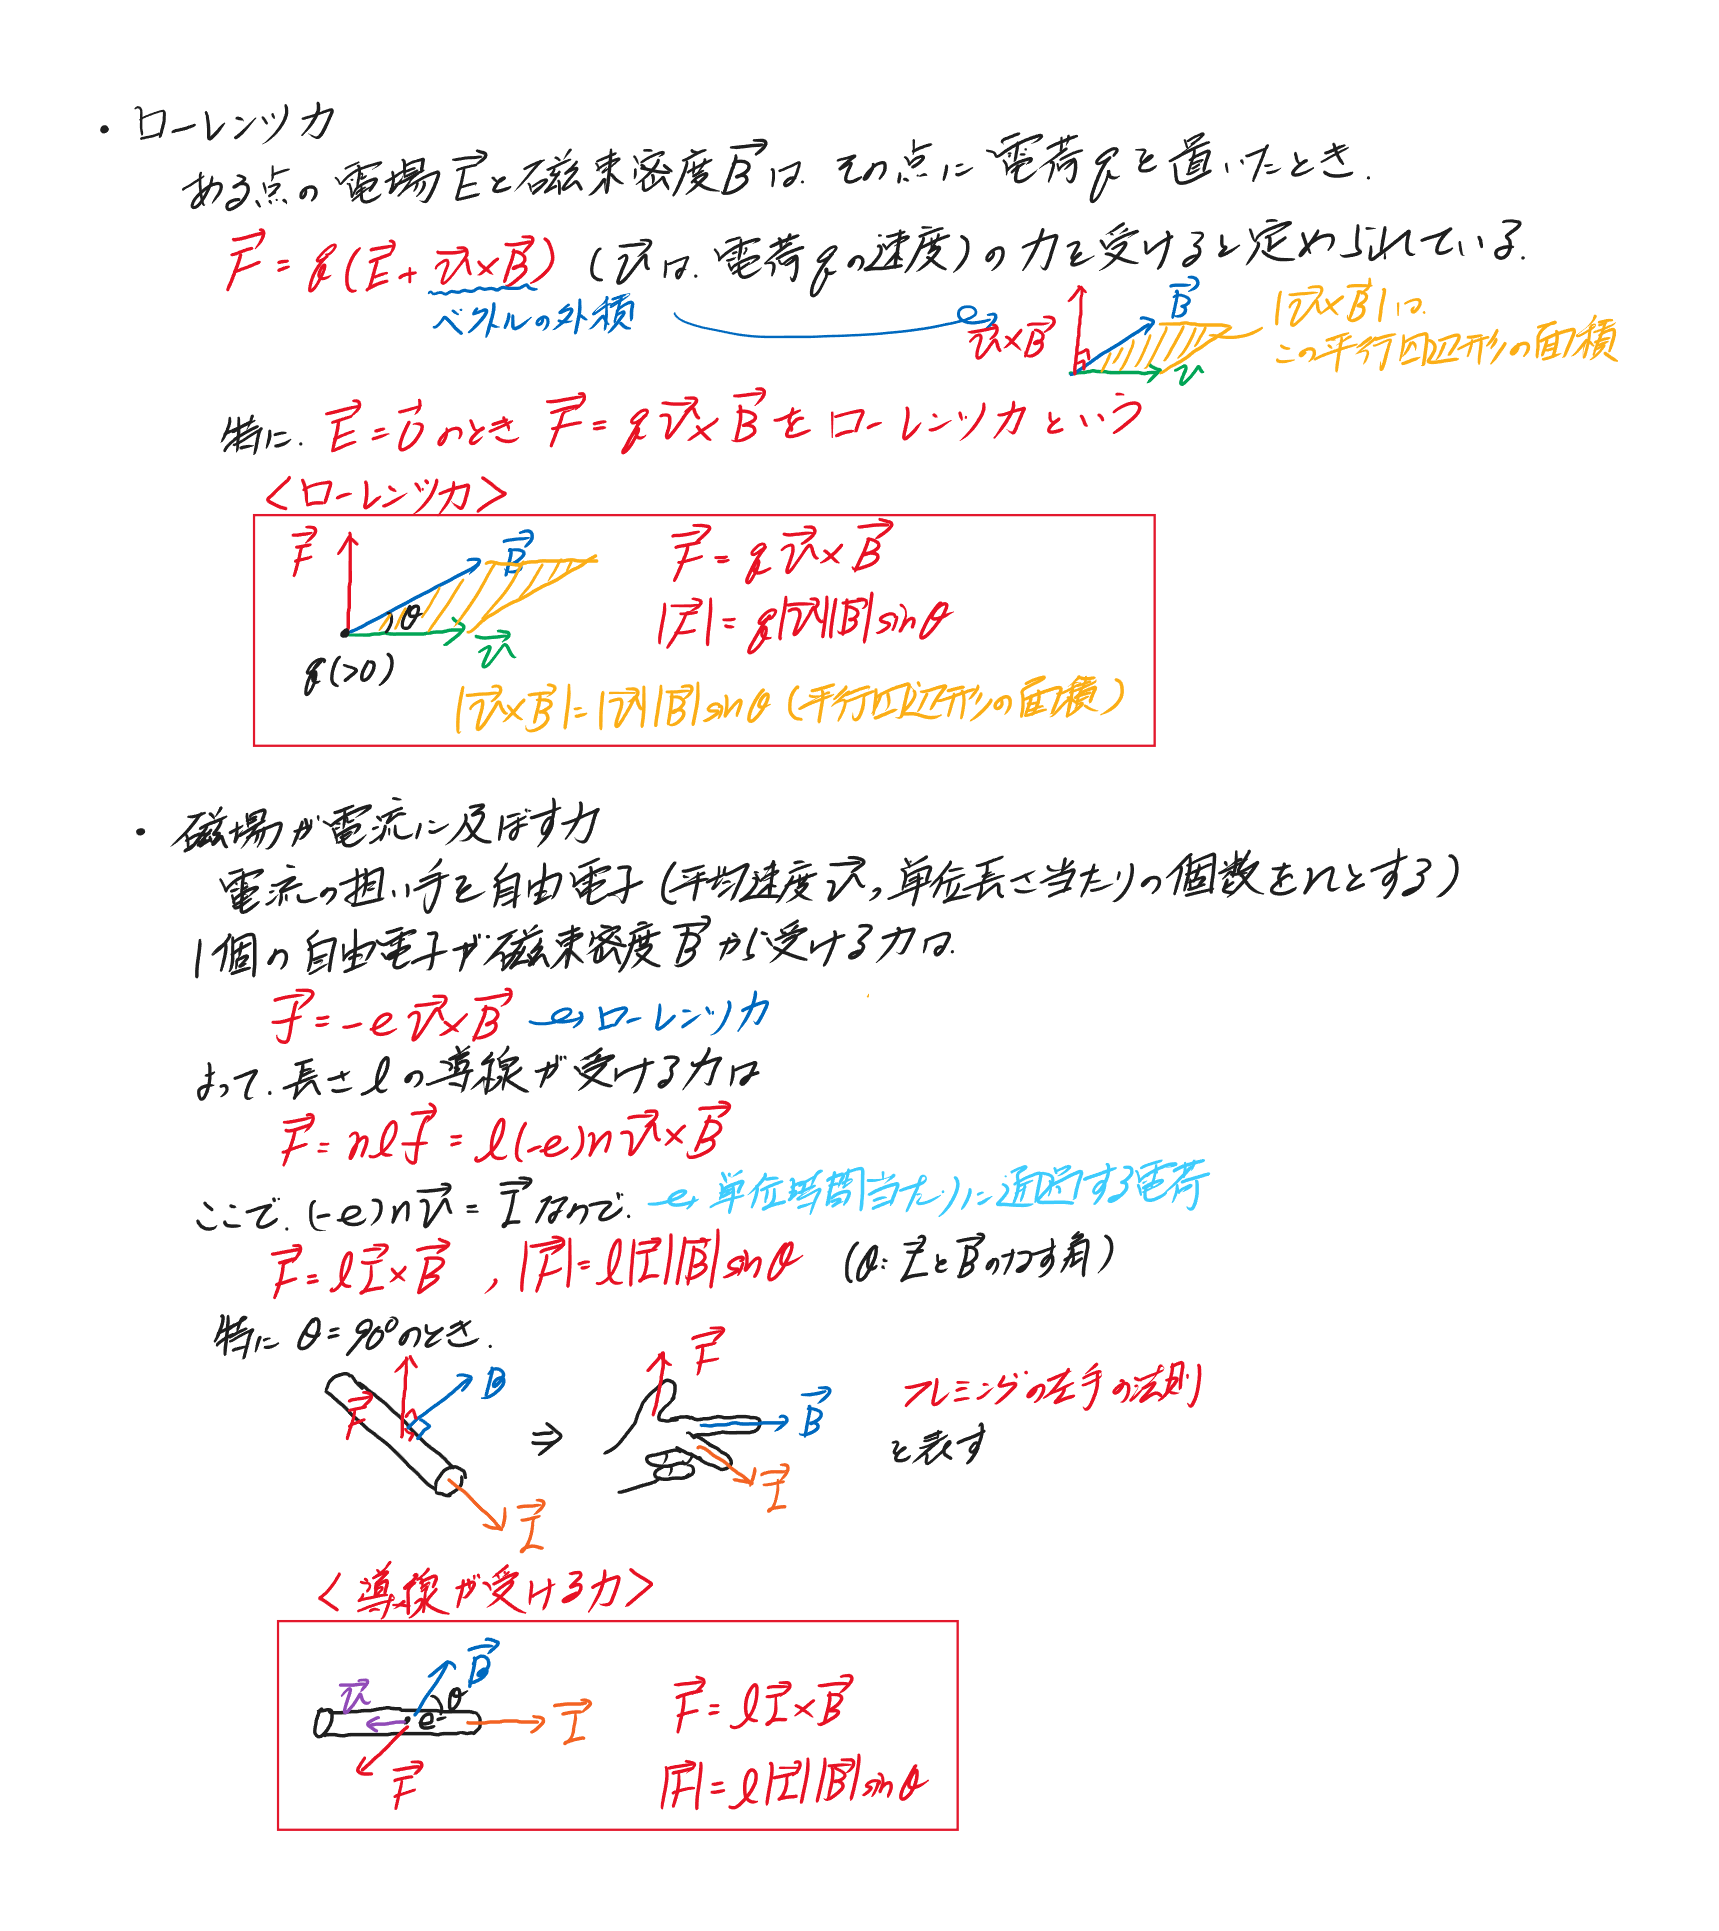 ・ローレンツ力
ある点の電場E⃗と磁束密度B⃗は、その点に電荷qを置いたとき、
F⃗=q(E⃗+v⃗×B⃗) (v⃗は、電荷qの速度)の力を受けると定められている。
ベクトルの外積
v⃗×B⃗
B⃗
v⃗
|v⃗×B⃗|は、
この平行四辺形の面積
特に、E⃗=0⃗のときF⃗=qv⃗×B⃗をローレンツ力という
<ローレンツ力>
F⃗
B⃗
θ
v⃗
q(>0)
F⃗=qv⃗×B⃗
|F⃗|=q|v⃗||B⃗|sinθ
|v⃗×B⃗|=|v⃗||B⃗|sinθ(平行四辺形の面積)
・磁場が電流に及ぼす力
電流の担い手を自由電子(平均速度v⃗,単位長さ当たりの個数をnとする)
1個の自由電子が磁束密度B⃗から受ける力は、
f⃗=-ev⃗×B⃗ → ローレンツ力
よって、長さlの導線が受ける力は
F⃗=nlf⃗=l(-e)nv⃗×B⃗
ここで、(-e)nv⃗=I⃗なので、 → 単位時間当たりに通過する電荷
F⃗=lI⃗×B⃗ , |F⃗|=l|I⃗||B⃗|sinθ (θ:I⃗とB⃗のなす角)
特にθ=90°のとき、
F⃗
B
I⃗
⇒
F⃗
B⃗
I⃗
フレミングの左手の法則
と表す
<導線が受ける力>
v⃗
B⃗
θ
e-
I⃗
F⃗
F⃗=lI⃗×B⃗
|F⃗|=l|I⃗||B⃗|sinθ